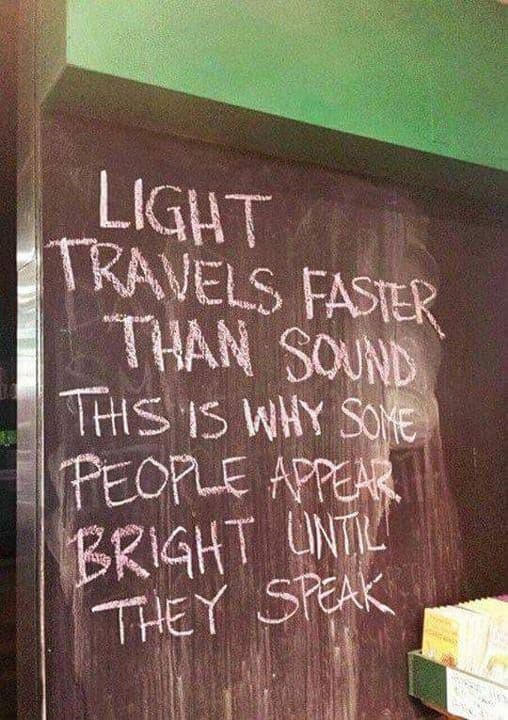 LIGHT
TRAVELS FASTER
THAN SOUND
THIS IS WHY SOME
PEOPLE APPEAR
BRIGHT UNTIL
THEY SPEAK